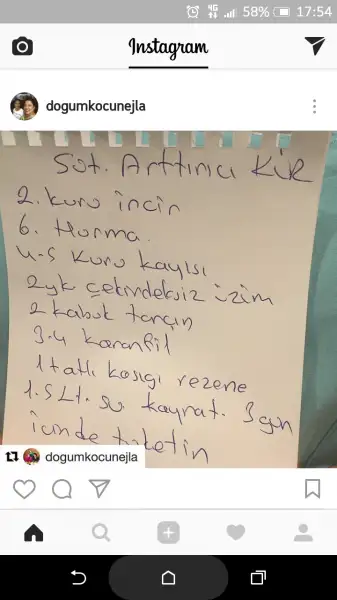 4G 58% 17:54
Instagram
dogumkocunejla
Süt. Arttırıcı KÜR
2. kuru incir
6. Hurma.
4-5 kuru kayısı
2 yk çekirdeksiz üzüm
2 kabuk tarçın
3-4 karanfil
1 tatlı kaşığı rezene
1.5 Lt. su kaynat. 3 gün
içinde tüketin
dogumkocunejla